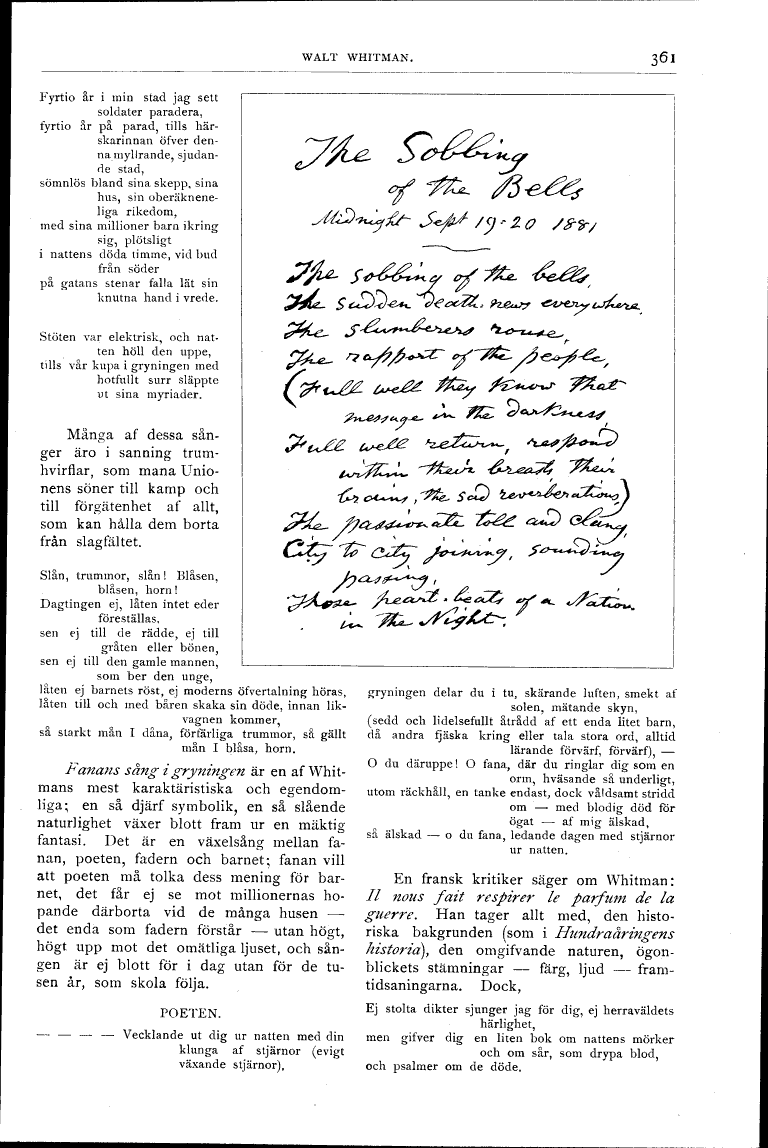 WALT WHITMAN. 361
Fyrtio år i min stad jag sett
soldater paradera,
fyrtio år på parad, tills här-
skarinnan öfver den-
na myllrande, sjudan-
de stad,
sömnlös bland sina skepp, sina
hus, sin oberäknene-
liga rikedom,
med sina millioner barn ikring
sig, plötsligt
i nattens döda timme, vid bud
från söder
på gatans stenar falla lät sin
knutna hand i vrede.
Stöten var elektrisk, och nat-
ten höll den uppe,
tills vår kupa i gryningen med
hotfullt surr släppte
ut sina myriader.
Många af dessa sån-
ger äro i sanning trum-
hvirflar, som mana Unio-
nens söner till kamp och
till förgätenhet af allt,
som kan hålla dem borta
från slagfältet.
Slån, trummor, slån! Blåsen,
blåsen, horn!
Dagtingen ej, låten intet eder
föreställas,
sen ej till de rädde, ej till
gråten eller bönen,
sen ej till den gamle mannen,
som ber den unge,
låten ej barnets röst, ej moderns öfvertalning höras,
låten till och med båren skaka sin döde, innan lik-
vagnen kommer,
så starkt mån I dåna, förfärliga trummor, så gällt
mån I blåsa, horn.
Fanans sång i gryningen är en af Whit-
mans mest karaktäristiska och egendom-
liga; en så djärf symbolik, en så slående
naturlighet växer blott fram ur en mäktig
fantasi. Det är en växelsång mellan fa-
nan, poeten, fadern och barnet; fanan vill
att poeten må tolka dess mening för bar-
net, det får ej se mot millionernas ho-
pande därborta vid de många husen —
det enda som fadern förstår — utan högt,
högt upp mot det omätliga ljuset, och sån-
gen är ej blott för i dag utan för de tu-
sen år, som skola följa.
POETEN.
— — — — Vecklande ut dig ur natten med din
klunga af stjärnor (evigt
växande stjärnor),
The Sobbing
of the Bells
Midnight Sept 19-20 1881
The sobbing of the bells,
The sudden death-news everywhere,
The slumberers rouse,
The rapport of the people,
(Full well they know that
message in the darkness,
Full well return, respond
within their breasts, their
brains, the sad reverberations,)
The passionate toll and clang,
City to city joining, sounding
passing,
Those heart-beats of a Nation
in the Night.
gryningen delar du i tu, skärande luften, smekt af
solen, mätande skyn,
(sedd och lidelsefullt åtrådd af ett enda litet barn,
då andra fjäska kring eller tala stora ord, alltid
lärande förvärf, förvärf), —
O du däruppe! O fana, där du ringlar dig som en
orm, hväsande så underligt,
utom räckhåll, en tanke endast, dock våldsamt stridd
om — med blodig död för
ögat — af mig älskad,
så älskad — o du fana, ledande dagen med stjärnor
ur natten.
En fransk kritiker säger om Whitman:
Il nous fait respirer le parfum de la
guerre. Han tager allt med, den histo-
riska bakgrunden (som i Hundraåringens
historia), den omgifvande naturen, ögon-
blickets stämningar — färg, ljud — fram-
tidsaningarna. Dock,
Ej stolta dikter sjunger jag för dig, ej herraväldets
härlighet,
men gifver dig en liten bok om nattens mörker
och om sår, som drypa blod,
och psalmer om de döde.